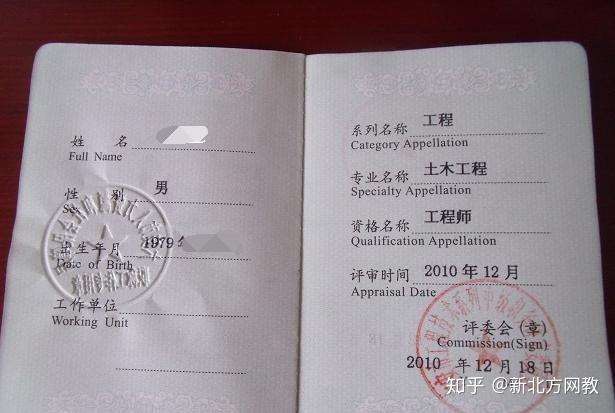 姓 名
Full Name
性 别 男
出生年月 1979
Date of Birth
工作单位
Working Unit
系列名称 工程
Category Appellation
专业名称 土木工程
Specialty Appellation
资格名称 工程师
Qualification Appellation
评审时间 2010 年 12 月
Appraisal Date
评委会 (章)
Commission(Sign)
2010 年 12 月 18 日
知乎 @新北方网教